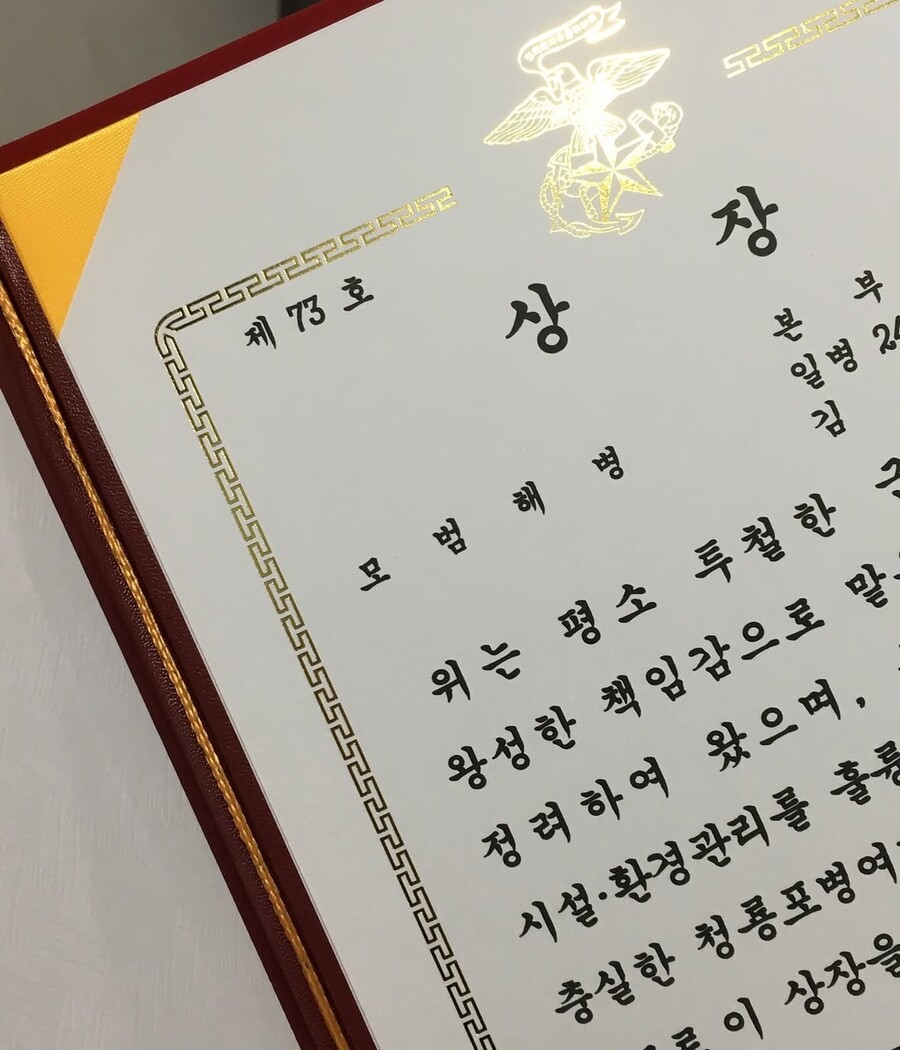 제 73 호
상 장
본 부
일병
김
모 범 해 병
위는 평소 투철한
왕성한 책임감으로
정려하여 왔으며,
시설·환경관리를
충실한 청룡포병여
이 상장을